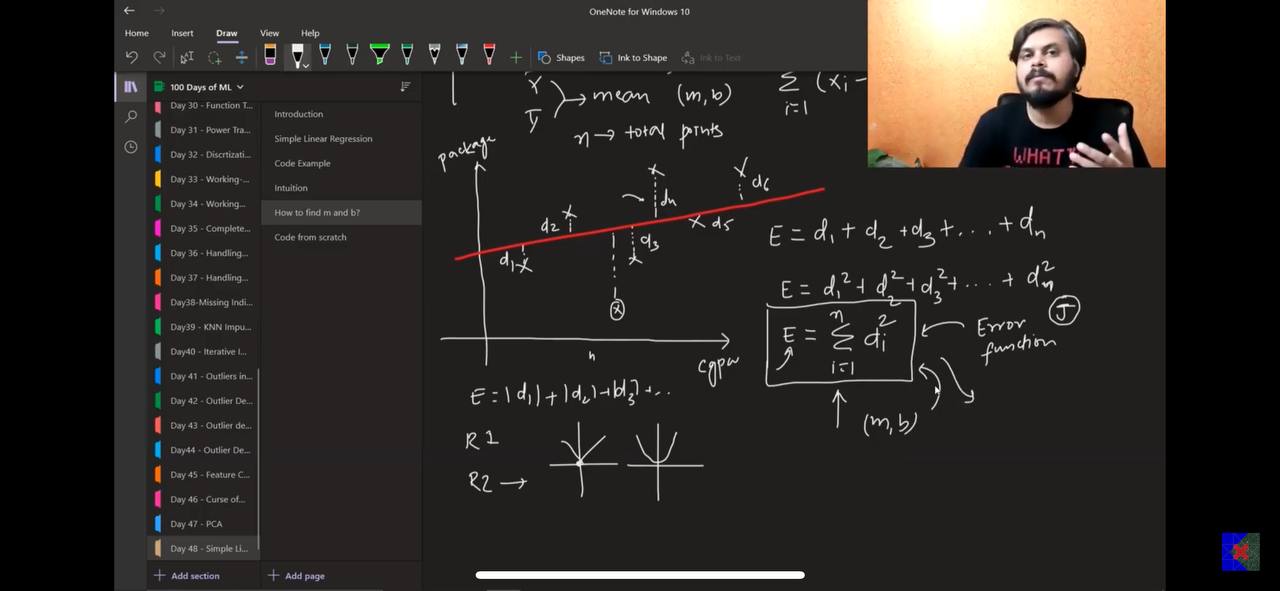 OneNote for Windows 10
Home Insert Draw View Help
Shapes Ink to Shape Ink to Text
100 Days of ML
Day 30 - Function T...
Day 31 - Power Tra...
Day 32 - Discrtizati...
Day 33 - Working-...
Day 34 - Working...
Day 35 - Complete...
Day 36 - Handling...
Day 37 - Handling...
Day38-Missing Indi...
Day39 - KNN Impu...
Day40 - Iterative I...
Day 41 - Outliers in...
Day 42 - Outlier De...
Day 43 - Outlier de...
Day44 - Outlier De...
Day 45 - Feature C...
Day 46 - Curse of...
Day 47 - PCA
Day 48 - Simple Li...
Add section
Introduction
Simple Linear Regression
Code Example
Intuition
How to find m and b?
Code from scratch
Add page
mean (m,b)
n → total points
Σ (xi -
i=1
package
d1 d2 d3 dn d5 d6
n
cgpa
E = |d1| + |d2| + |d3| + ..
R1
R2 →
E = d1 + d2 + d3 + ... + dn
E = d1² + d2² + d3² + ... + dn²
E = Σ di²
n
i=1
Error function
J
(m,b)
WHAT